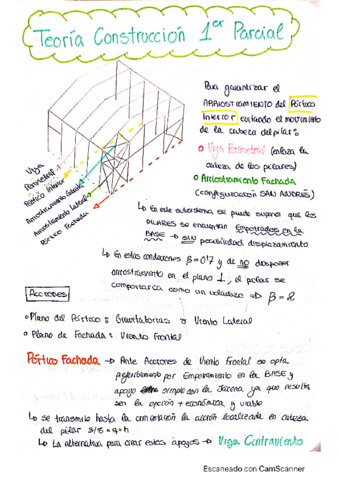 Teoría Construcción 1er Parcial
Para garantizar el
ARRIOSTRAMIENTO del Pórtico
Interior evitando el movimiento
de la cabeza del pilar:
○ Viga Perimetral (enlaza la
cabeza de los pilares)
○ Arriostramiento Fachada
(configuración SAN ANDRÉS)
Viga
Perimetral
Pórtico Interior
Arriostramiento Cubierta
Arriostramiento Lateral
Pórtico Fachada
↳ En este subsistema se puede suponer que los
PILARES se encuentran Empotrados en la
BASE → sin posibilidad desplazamiento
↳ En estas condiciones β = 0'7 y de no disponer
arriostramiento en el plano ⊥, el pilar se
comportaría como un voladizo ⇒ β = 2
Acciones
○ Plano del Pórtico: Gravitatorias y Viento Lateral
○ Plano de Fachada: Viento Frontal
Pórtico Fachada → Ante Acciones de Viento Frontal se opta
preferiblemente por Empotramiento en la BASE y
apoyo simple con la Jácena ya que resulta
ser la opción + económica y viable
↳ se transmite hasta la cimentación la acción localizada en cabeza
del pilar
↳ La alternativa para crear estos apoyos → Viga Contraviento
Escaneado con CamScanner